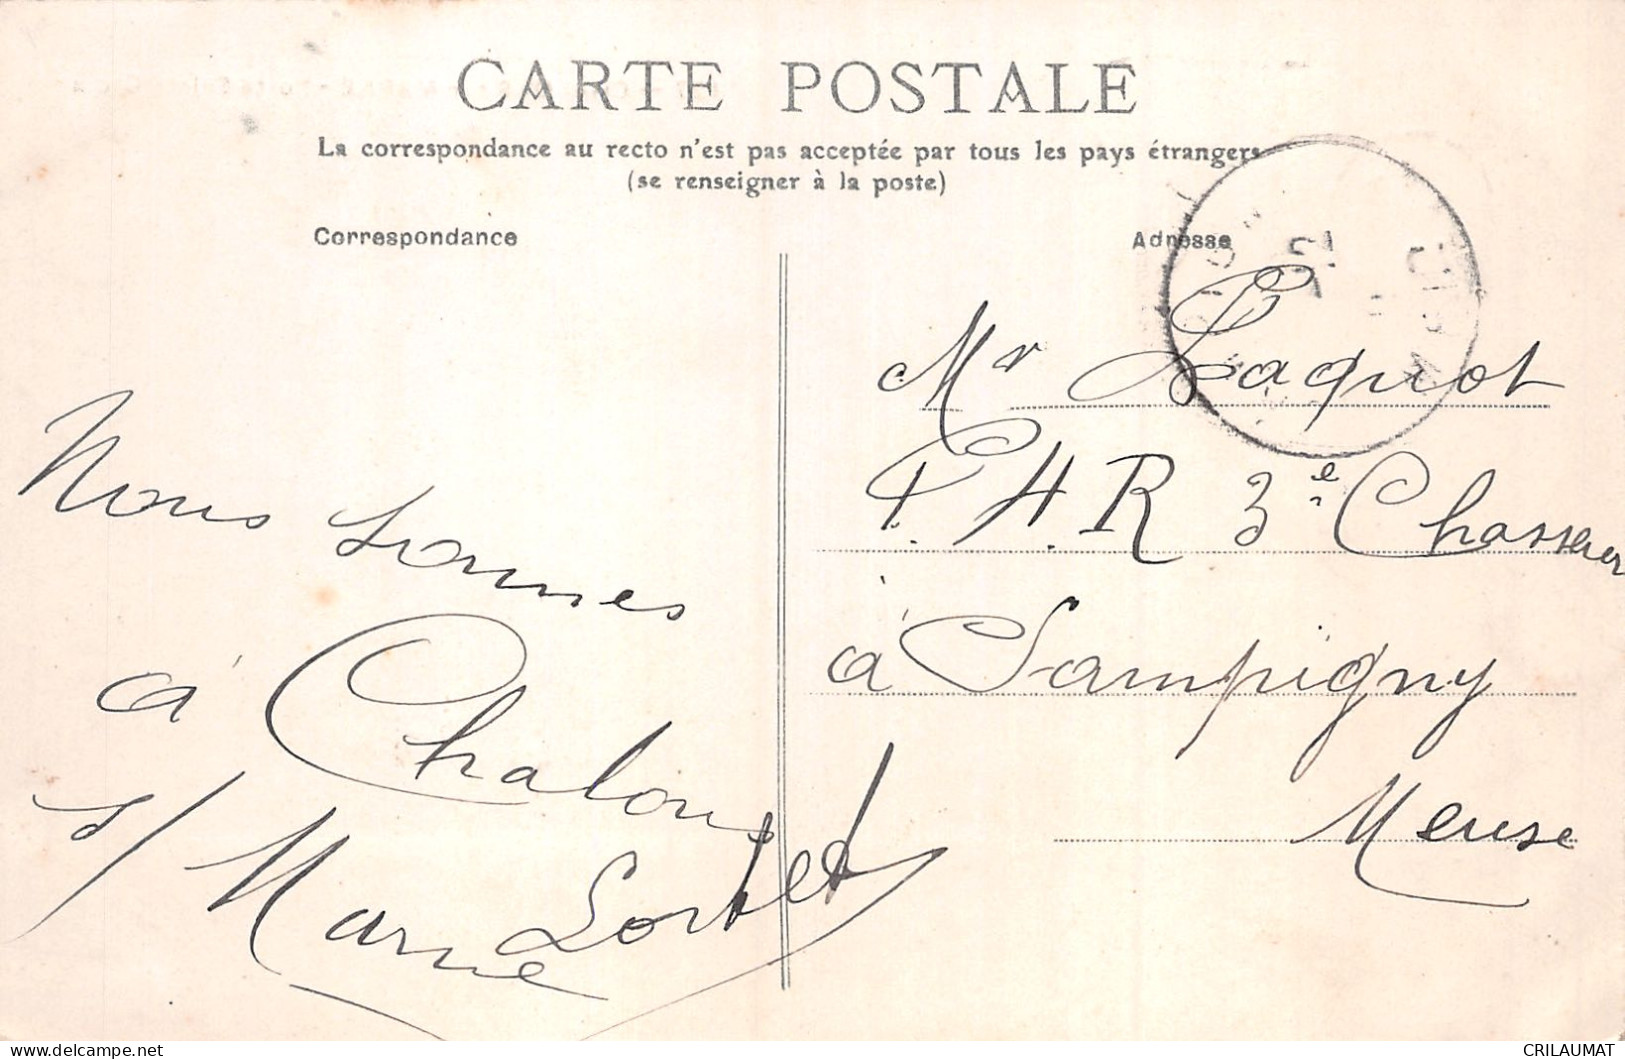 CARTE POSTALE
La correspondance au recto n'est pas acceptée par tous les pays étrangers
(se renseigner à la poste)
Correspondance
Adresse
Nous sommes
à Chalons
s/ Marne
Sorlet
Mr Laquot
P. H. R 3e Chasseur
à Sampigny
Meuse
Delcampe.net
CRILAUMAT